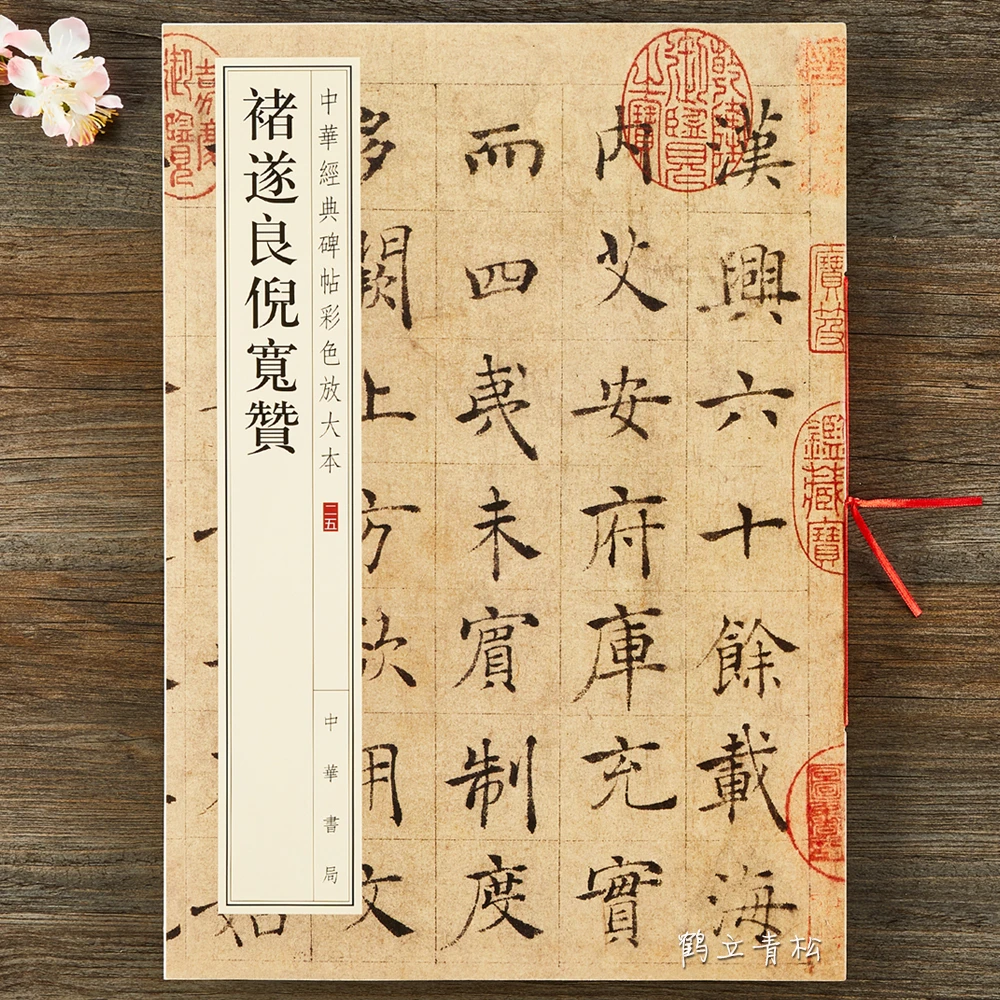 褚遂良倪寬贊
中華經典碑帖彩色放大本
二五
中華書局
漢興六十餘載海
內艾安府庫充實
而四夷未賓制度
多闕上方欲用文
鑑藏寶
鹤立青松